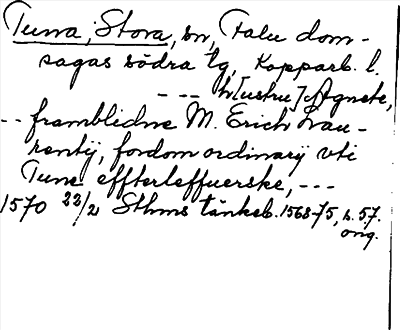 Tuna, Stora, sn, Falu dom-
sagas södra tg, Kopparb. l.
--- h[ustru] Agnete,
-- framblidne M. Erich Lau-
rentij, fordom ordinarij vti
Tune effterleffuerske, ---
1570 22/2 Sthms tänkeb. 1568-75, s. 57.
orig.